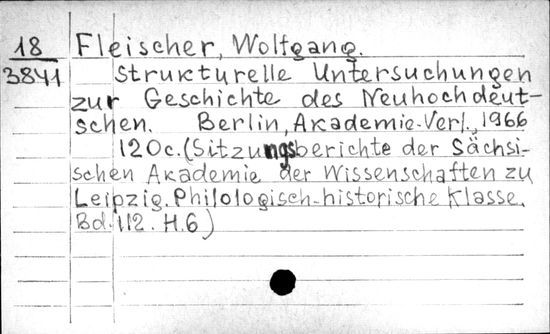 18 Fleischer, Wolfgang.
3841 Strukturelle Untersuchungen
zur Geschichte des Neuhochdeut-
schen. Berlin, Akademie-Verl., 1966
120c. (Sitzungsberichte der Sächsi-
schen Akademie der Wissenschaften zu
Leipzig. Philologisch-historische Klasse.
Bd. 112. H.6)